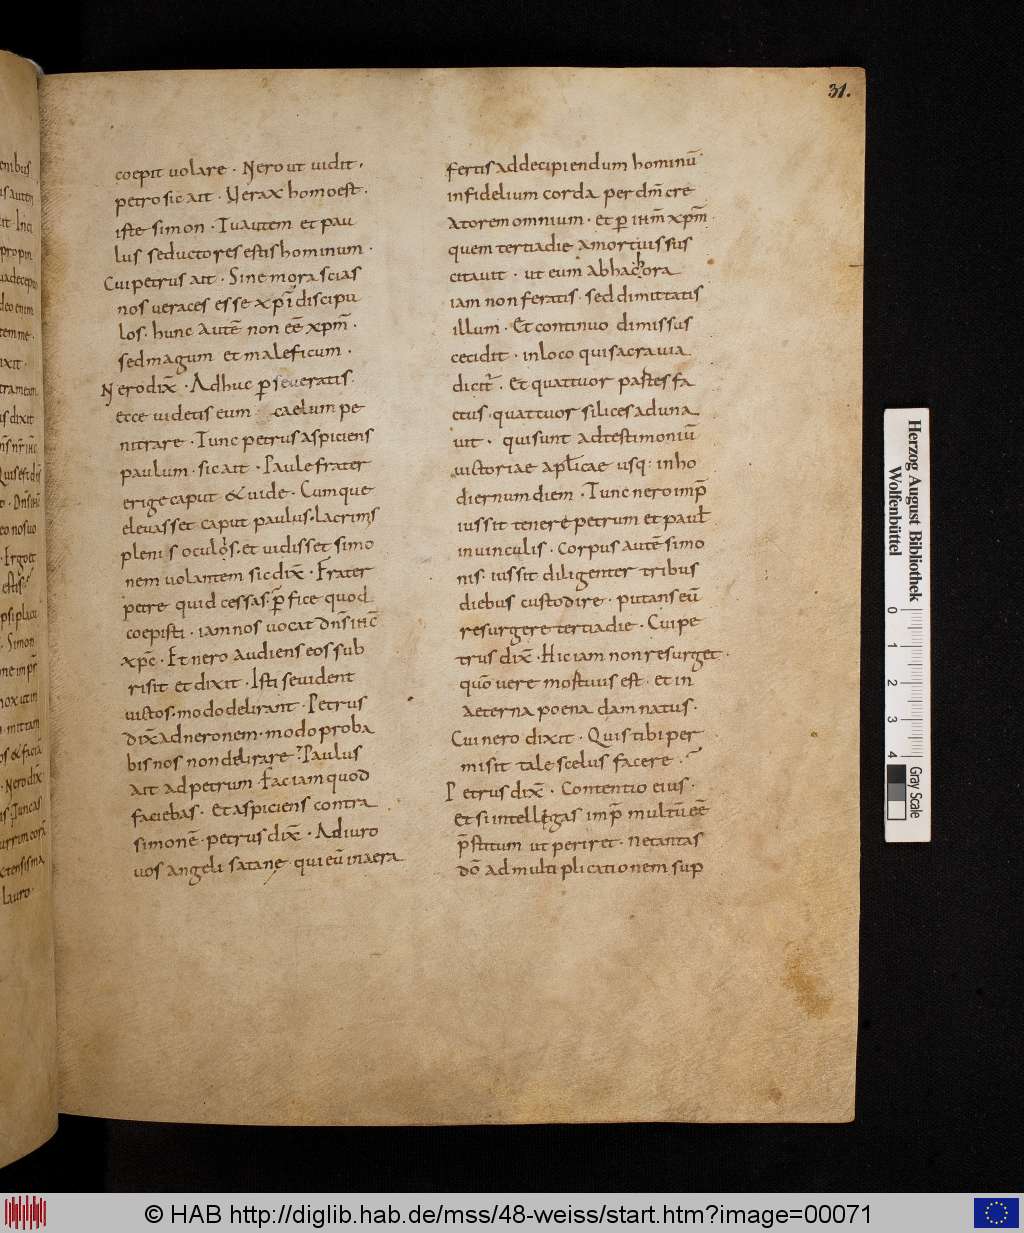 31.
coepit uolare · Nero ut uidit ·
petro sic ait · Uerax homo est ·
iste simon · Tu autem et pau
lus seductores estis hominum ·
Cui petrus ait · Sine mora scias
nos ueraces esse xp̄i discipu
los · hunc autē non eē xpm̄ ·
sed magum et maleficum ·
Nero dix̄ · Adhuc p̱seueratis ·
ecce uidetis eum caelum pe
nitrare · Tunc petrus aspiciens
paulum · sic ait · Paule frater
erige caput & uide · Cumque
eleuasset caput paulus · lacrimis
plenis oculos · et uidisset simo
nem uolantem sic dix̄ · Frater
petre quid cessas · p̱fice quod
coepisti · iam nos uocat dn̄s ihc̄
xpc̄ · Et nero audiens eos sub
risit et dixit · Isti se uident
uictos · modo delirant · Petrus
dix̄ ad neronem · modo proba
bis nos non delirare · Paulus
ait ad petrum · Fac iam quod
faciebas · Et aspiciens contra
simonē · petrus dix̄ · Adiuro
uos angeli satane · qui eū in aera
fertis ad decipiendum hominū ·
infidelium corda per dm̄ cre
atorem omnium · et p̱ ihm̄ xpm̄ ·
quem tertia die a mortuis sus
citauit · ut eum ab hac hora
iam non feratis · sed dimittatis
illum · Et continuo dimissus
cecidit · in loco qui sacra uia
dicit̄ · Et quattuor partes fa
ctus · quattuor silices aduna
uit · qui sunt ad testimoniū
uictoriae aplicae usq: in ho
diernum diem · Tunc nero imp̄
iussit tenere petrum et paul̄
in uinculis · Corpus autē simo
nis · iussit diligenter tribus
diebus custodire · putans eū
resurgere tertia die · Cui pe
trus dix̄ · Hic iam non resurget ·
quō uere mortuus est · et in
aeterna poena damnatus ·
Cui nero dixit · Quis tibi per
misit tale scelus facere ·
Petrus dix̄ · Contentio eius ·
et si intellegas imp̄ multū eē
p̄stitum ut periret · ne tantas
dō ad multiplicationem sup
Herzog August Bibliothek
Wolfenbüttel
0 1 2 3 4
Gray Scale
© HAB http://diglib.hab.de/mss/48-weiss/start.htm?image=00071